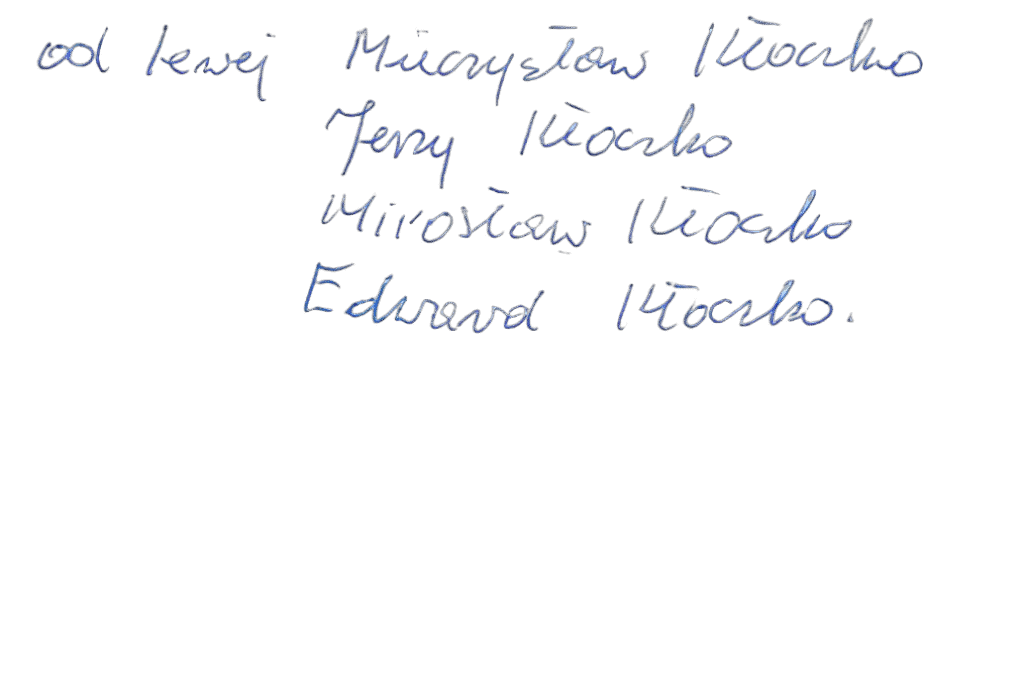 od lewej Mieczysław Kłoczko
Jerzy Kłoczko
Mirosław Kłoczko
Edward Kłoczko.